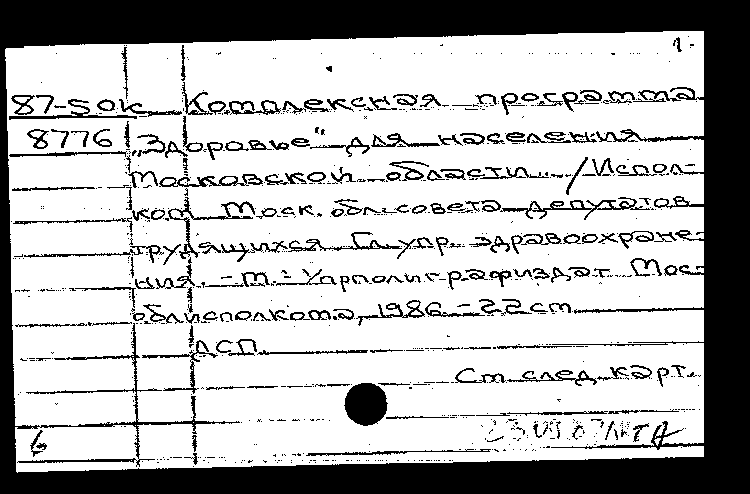 1.
87-5 ок Комплексная программа
8776 „Здоровье" для населения
Московской области. / Испол-
ком Моск. обл. совета депутатов
трудящихся. Гл. упр. здравоохране-
ния. - М.: Упрполиграфиздат Мос-
облисполкома, 1986. - 22 см
ДСП.
См. след. карт.
6 23.09.87